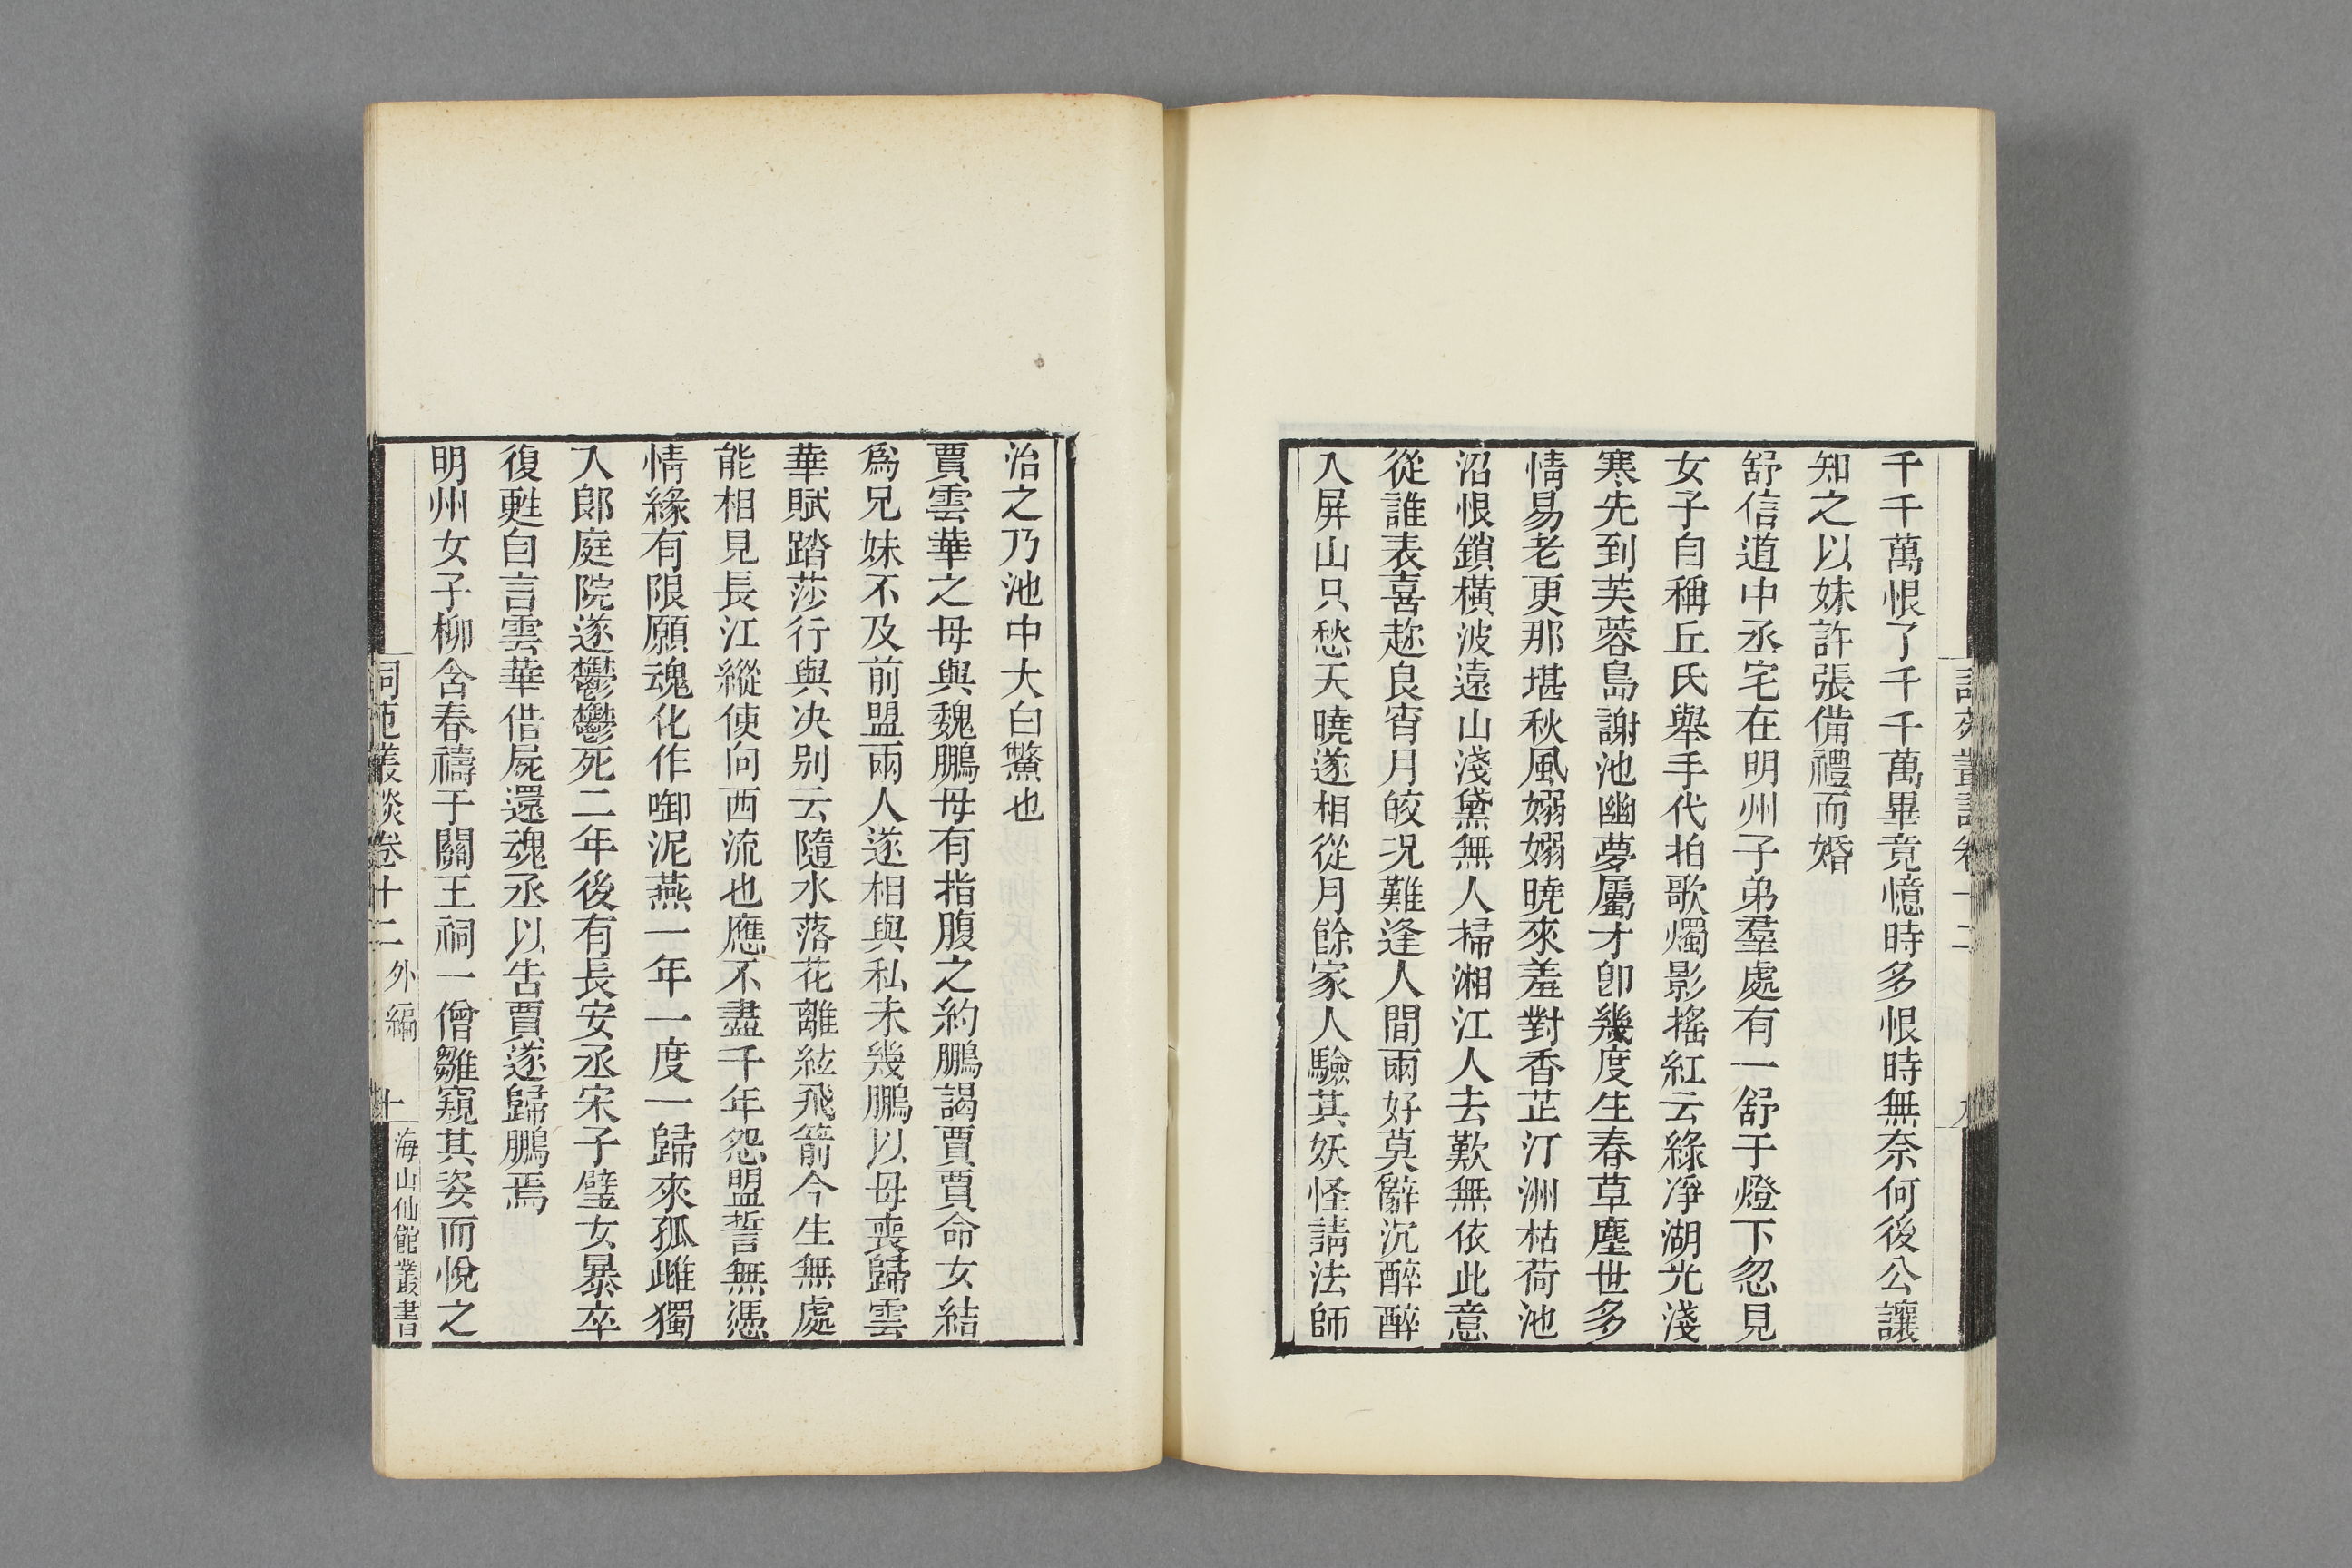 千千萬恨了千千萬畢竟憶時多恨時無奈何後公讓
知之以妹許張備禮而婚
舒信道中丞宅在明州子弟羣處有一舒于燈下忽見
女子自稱丘氏舉手代拍歌燭影搖紅云綠凈湖光淺
寒先到芙蓉島謝池幽夢屬才卽幾度生春草塵世多
情易老更那堪秋風嫋嫋曉來羞對香芷汀洲枯荷池
沼恨鎖橫波遠山淺黛無人掃湘江人去歎無依此意
從誰表喜趂良宵月皎况難逢人間兩好莫辭沉醉醉
入屏山只愁天曉遂相從月餘家人驗其妖怪請法師
治之乃池中大白鱉也
賈雲華之母與魏鵬母有指腹之約鵬謁賈賈命女結
爲兄妹不及前盟兩人遂相與私未幾鵬以母喪歸雲
華賦踏莎行與决別云隨水落花離絃飛箭今生無處
能相見長江縱使向西流也應不盡千年怨盟誓無憑
情緣有限願魂化作啣泥燕一年一度一歸來孤雌獨
入郞庭院遂鬱鬱死二年後有長安丞宋子璧女暴卒
復甦自言雲華借屍還魂丞以告賈遂歸鵬焉
明州女子柳含春禱于關王祠一僧雛窺其姿而悅之
詞苑叢談卷十二 外編 十 海山仙館叢書